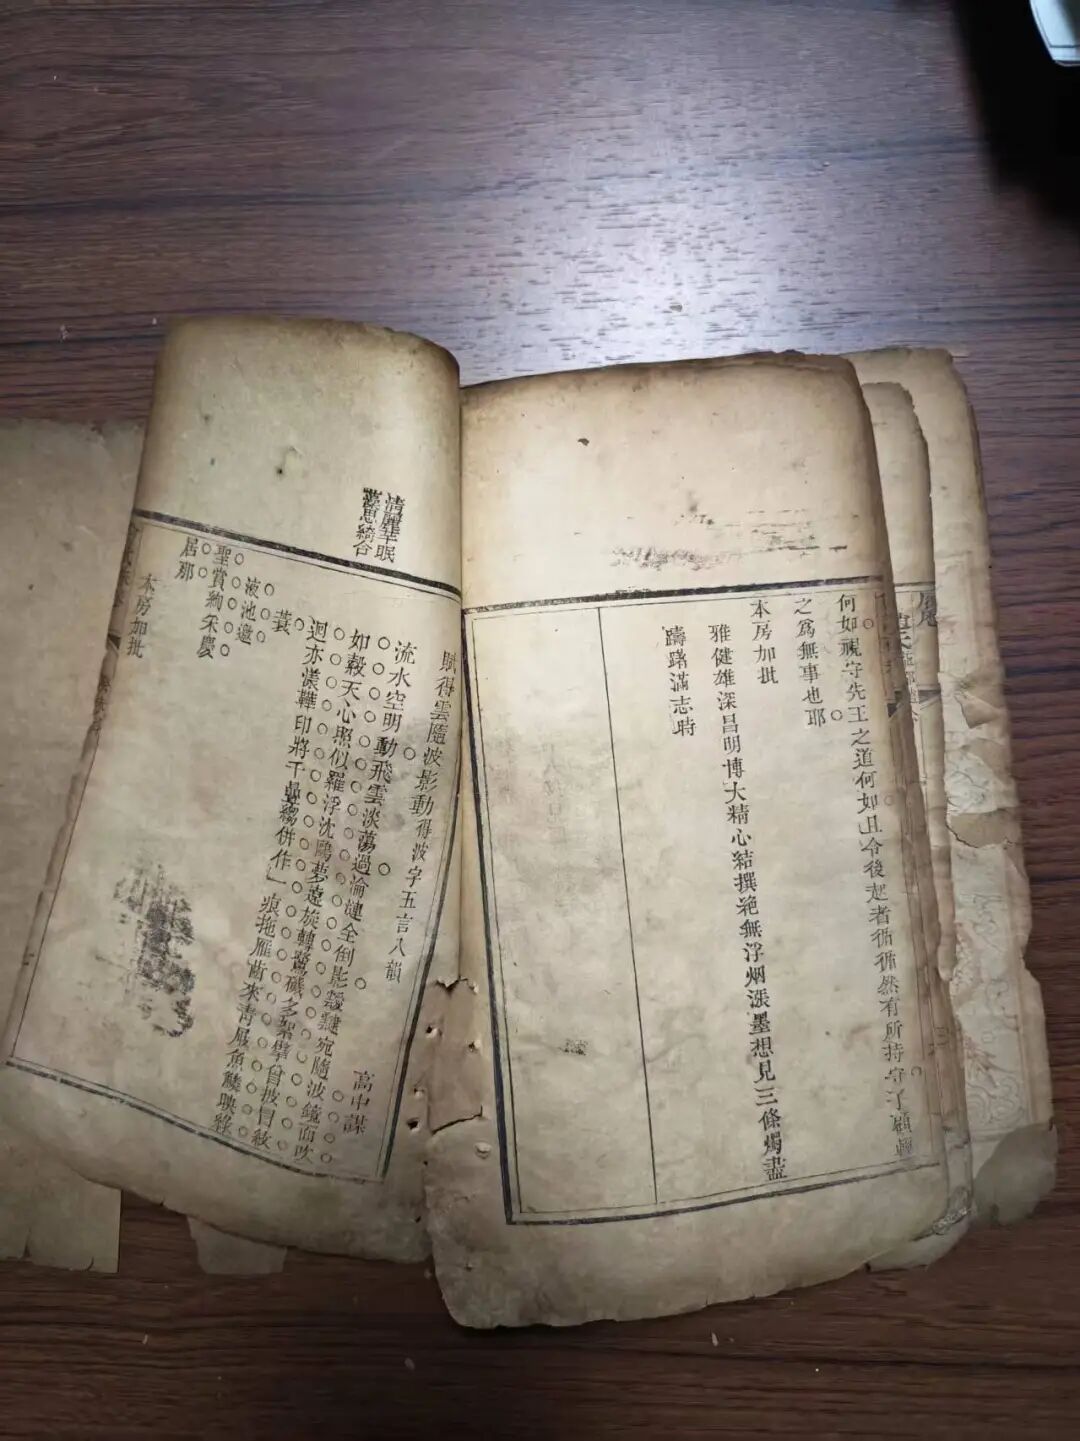 何如視守先王之道何如且令後起者循循然有所持守了顧輕
之為無事也耶
本房加批
雅健雄深昌明博大精心結撰絶無浮烟漲墨想見三條燭盡
躊躇滿志時
清麗芊眠
夢思綺合
賦得雲隨波影動得波字五言八韻
高中謀
流水空明動飛雲淡蕩過淪漣全倒影靉靆宛隨波鏡面吹
如縠天心照似羅浮沈鷗夢遶旋轉鷺磯多絮擘曾披目紋
迴亦漾鞾印將千疊霧併作一痕拖雁齒來青展魚鱗映綠
蓑
液池邀
聖賞絢采慶
居那
本房加批